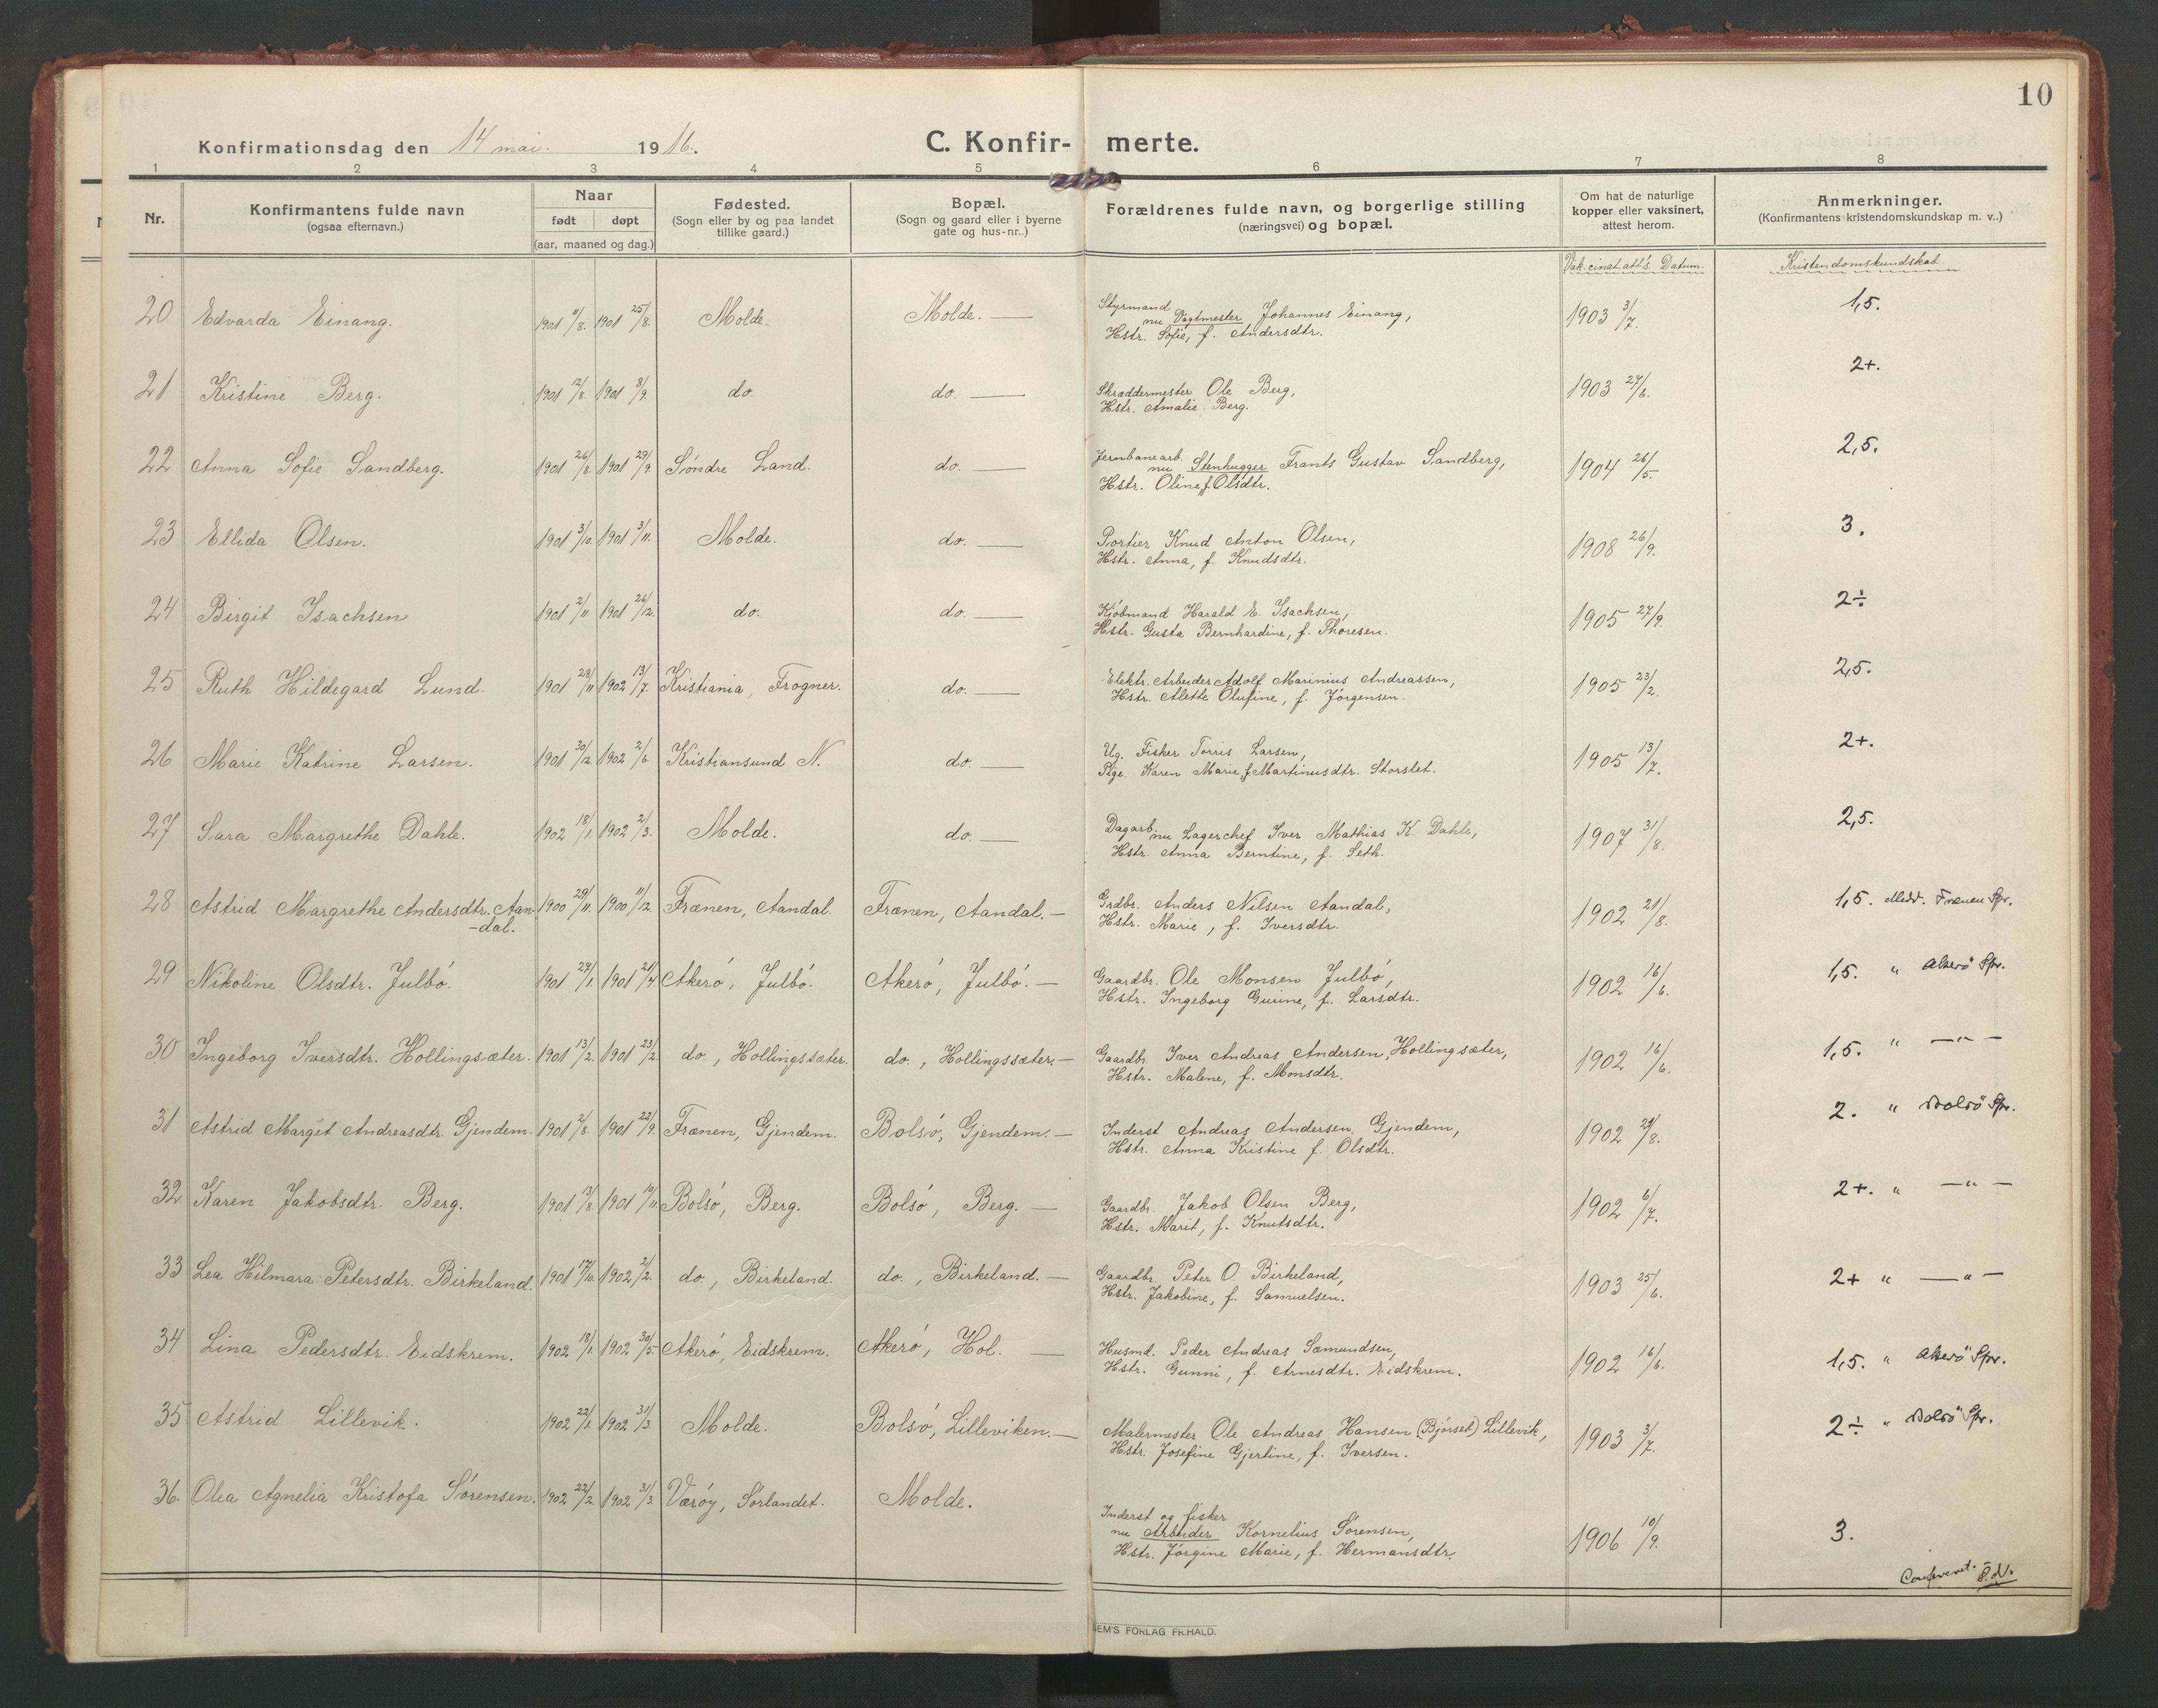 10
Konfirmationsdag den 14 mai. 1916.
C. Konfir- merte.
1 2 3 4 5 6 7 8
Nr.
Konfirmantens fulde navn
(ogsaa efternavn.)
Naar
født døpt
(aar, maaned og dag.)
Fødested.
(Sogn eller by og paa landet
tillike gaard.)
Bopæl.
(Sogn og gaard eller i byerne
gate og hus-nr..)
Forældrenes fulde navn, og borgerlige stilling
(næringsvei) og bopæl.
Om hat de naturlige
kopper eller vaksinert,
attest herom.
Anmerkninger.
(Konfirmantens kristendomskundskap m. v..)
Vak.cinat.att's. Datum. Kristendomskundskab.
20 Edvarda Einang. 1901 /8. 1901 25/8. Molde. Molde. — Styrmand
nu Vagtmester Johannes Einang,
Hstr. Sofie, f. Andersdtr. 1903 3/7. 1,5.
21 Kristine Berg. 1901 12/8. 1901 8/9. do. do. — Skræddermester Ole Berg,
Hstr. Amalie Berg. 1903 27/6. 2+.
22 Anna Sofie Sandberg. 1901 26/8. 1901 29/9. Söndre Land. do. — Jernbanearb.
nu Stenhugger Frants Gustav Sandberg,
Hstr. Oline f. Olsdtr. 1904 26/5. 2,5.
23 Ellida Olsen. 1901 3/10. 1901 3/11. Molde. do. — Portier Knud Anton Olsen,
Hstr. Anna, f. Knudsdtr. 1908 26/9. 3.
24 Birgit Isachsen 1901 2/11 1901 26/12. do. do. — Kjöbmand Harald E. Isachsen,
Hstr. Gusta Bernhardine, f. Thoresen. 1905 27/9. 2÷
25 Ruth Hildegard Lund. 1901 28/11 1902 13/7. Kristiania, Frogner. do. — Elektr. Arbeider Adolf Marinius Andreassen,
Hstr. Alette Olufine, f. Jörgensen. 1905 23/2. 2,5.
26 Marie Katrine Larsen. 1901 30/12. 1902 2/6 Kristiansund N. do. — Ug. Fisker Torris Larsen,
Pige Karen Marie f. Martinusdtr. Storslet. 1905 13/7. 2+.
27 Sara Margrethe Dahle. 1902 18/1. 1902 2/3. Molde. do. — Dagarb.
nu Lagerchef Iver Mathias K. Dahle,
Hstr. Anna Berntine, f. Seth. 1907 31/8. 2,5.
28 Astrid Margrethe Andersdtr. Aan-
-dal. 1900 29/11. 1900 11/12. Frænen, Aandal. Frænen, Aandal. — Grdbr. Anders Nilsen Aandal,
Hstr. Marie, f. Iversdtr. 1902 21/8. 1,5. Medd. Frænen Spr.
29 Nikoline Olsdtr. Julbö. 1901 27/1. 1901 21/4 Akerö, Julbö. Akerö, Julbö. — Gaardbr. Ole Monsen Julbö,
Hstr. Ingeborg Gurine, f. Larsdtr. 1902 16/6. 1,5. " Akerö Spr.
30 Ingeborg Iversdtr. Hollingsæter. 1901 13/2. 1901 23/2 do., Hollingssæter. do., Hollingssæter. — Gaardbr. Iver Andreas Andersen Hollingsæter,
Hstr. Malene, f. Monsdtr. 1902 16/6. 1,5. " — " —
31 Astrid Margit Andreasdtr. Gjendem. 1901 2/8. 1901 22/9. Frænen, Gjendem. Bolsö, Gjendem. — Inderst Andreas Andersen Gjendem,
Hstr. Anna Kristine f. Olsdtr. 1902 21/8. 2. " Bolsö Spr.
32 Karen Jakobsdtr. Berg. 1901 13/8. 1901 10/11. Bolsö, Berg. Bolsö, Berg. — Gaardbr. Jakob Olsen Berg,
Hstr. Marit, f. Knutsdtr. 1902 6/7. 2+. " — " —
33 Lea Hilmara Petersdtr. Birkeland. 1901 17/10. 1902 2/2. do., Birkeland. do., Birkeland. — Gaardbr. Peter O. Birkeland,
Hstr. Jakobine, f. Samuelsen. 1903 25/6. 2+ " — " —
34 Lina Pedersdtr. Eidskrem. 1902 18/1. 1902 30/5. Akerö, Eidskrem. Akerö, Hol. — Husmd. Peder Andreas Sæmundsen,
Hstr. Gunni, f. Arnesdtr. Eidskrem. 1902 16/6. 1,5. " Akerö Spr.
35 Astrid Lillevik. 1902 22/1. 1902 31/3. Molde. Bolsö, Lilleviken. — Malermester Ole Andreas Hansen (Bjørset) Lillevik,
Hstr. Josefine Gjertine, f. Iversen. 1903 3/7. 2÷ " Bolsö Spr.
36. Olea Agnelia Kristofa Sörensen. 1902 22/2. 1902 31/3. Værøy, Sörlandet. Molde. Inderst og fisker
nu Arbeider Kornelius Sörensen,
Hstr. Jörgine Marie, f. Hermansdtr. 1906 10/9. 3.
Confereret.
NEM'S FORLAG FR.HALD.